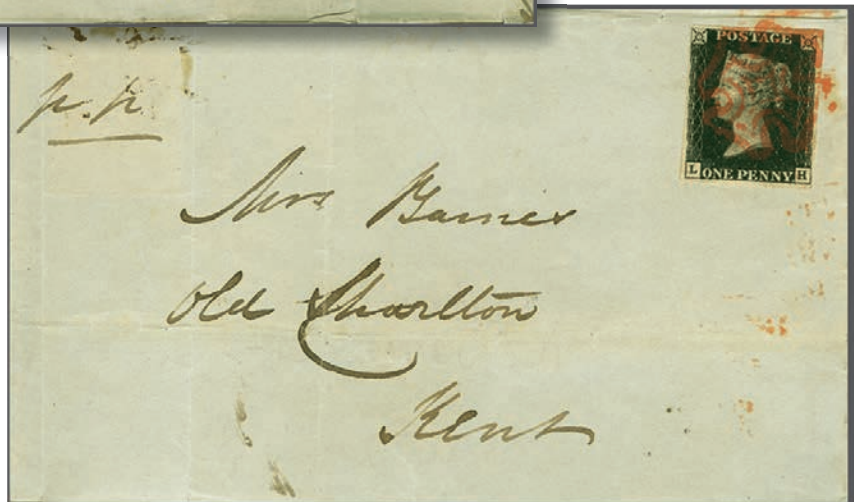 p.p.
POSTAGE
L ONE PENNY H
Mrs Barnes
Old Charlton
Kent